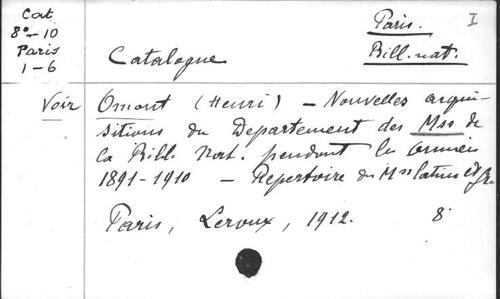 Cat
8º-10
Paris
1-6
Paris. I
Bibl. nat.
Catalogue
Voir Omont (Henri) - Nouvelles acqui-
sitions du Departement des Mss de
la Bibl. Nat. pendant les années
1891-1910 - Repertoire des Mss latins et
Paris, Leroux, 1912. 8º